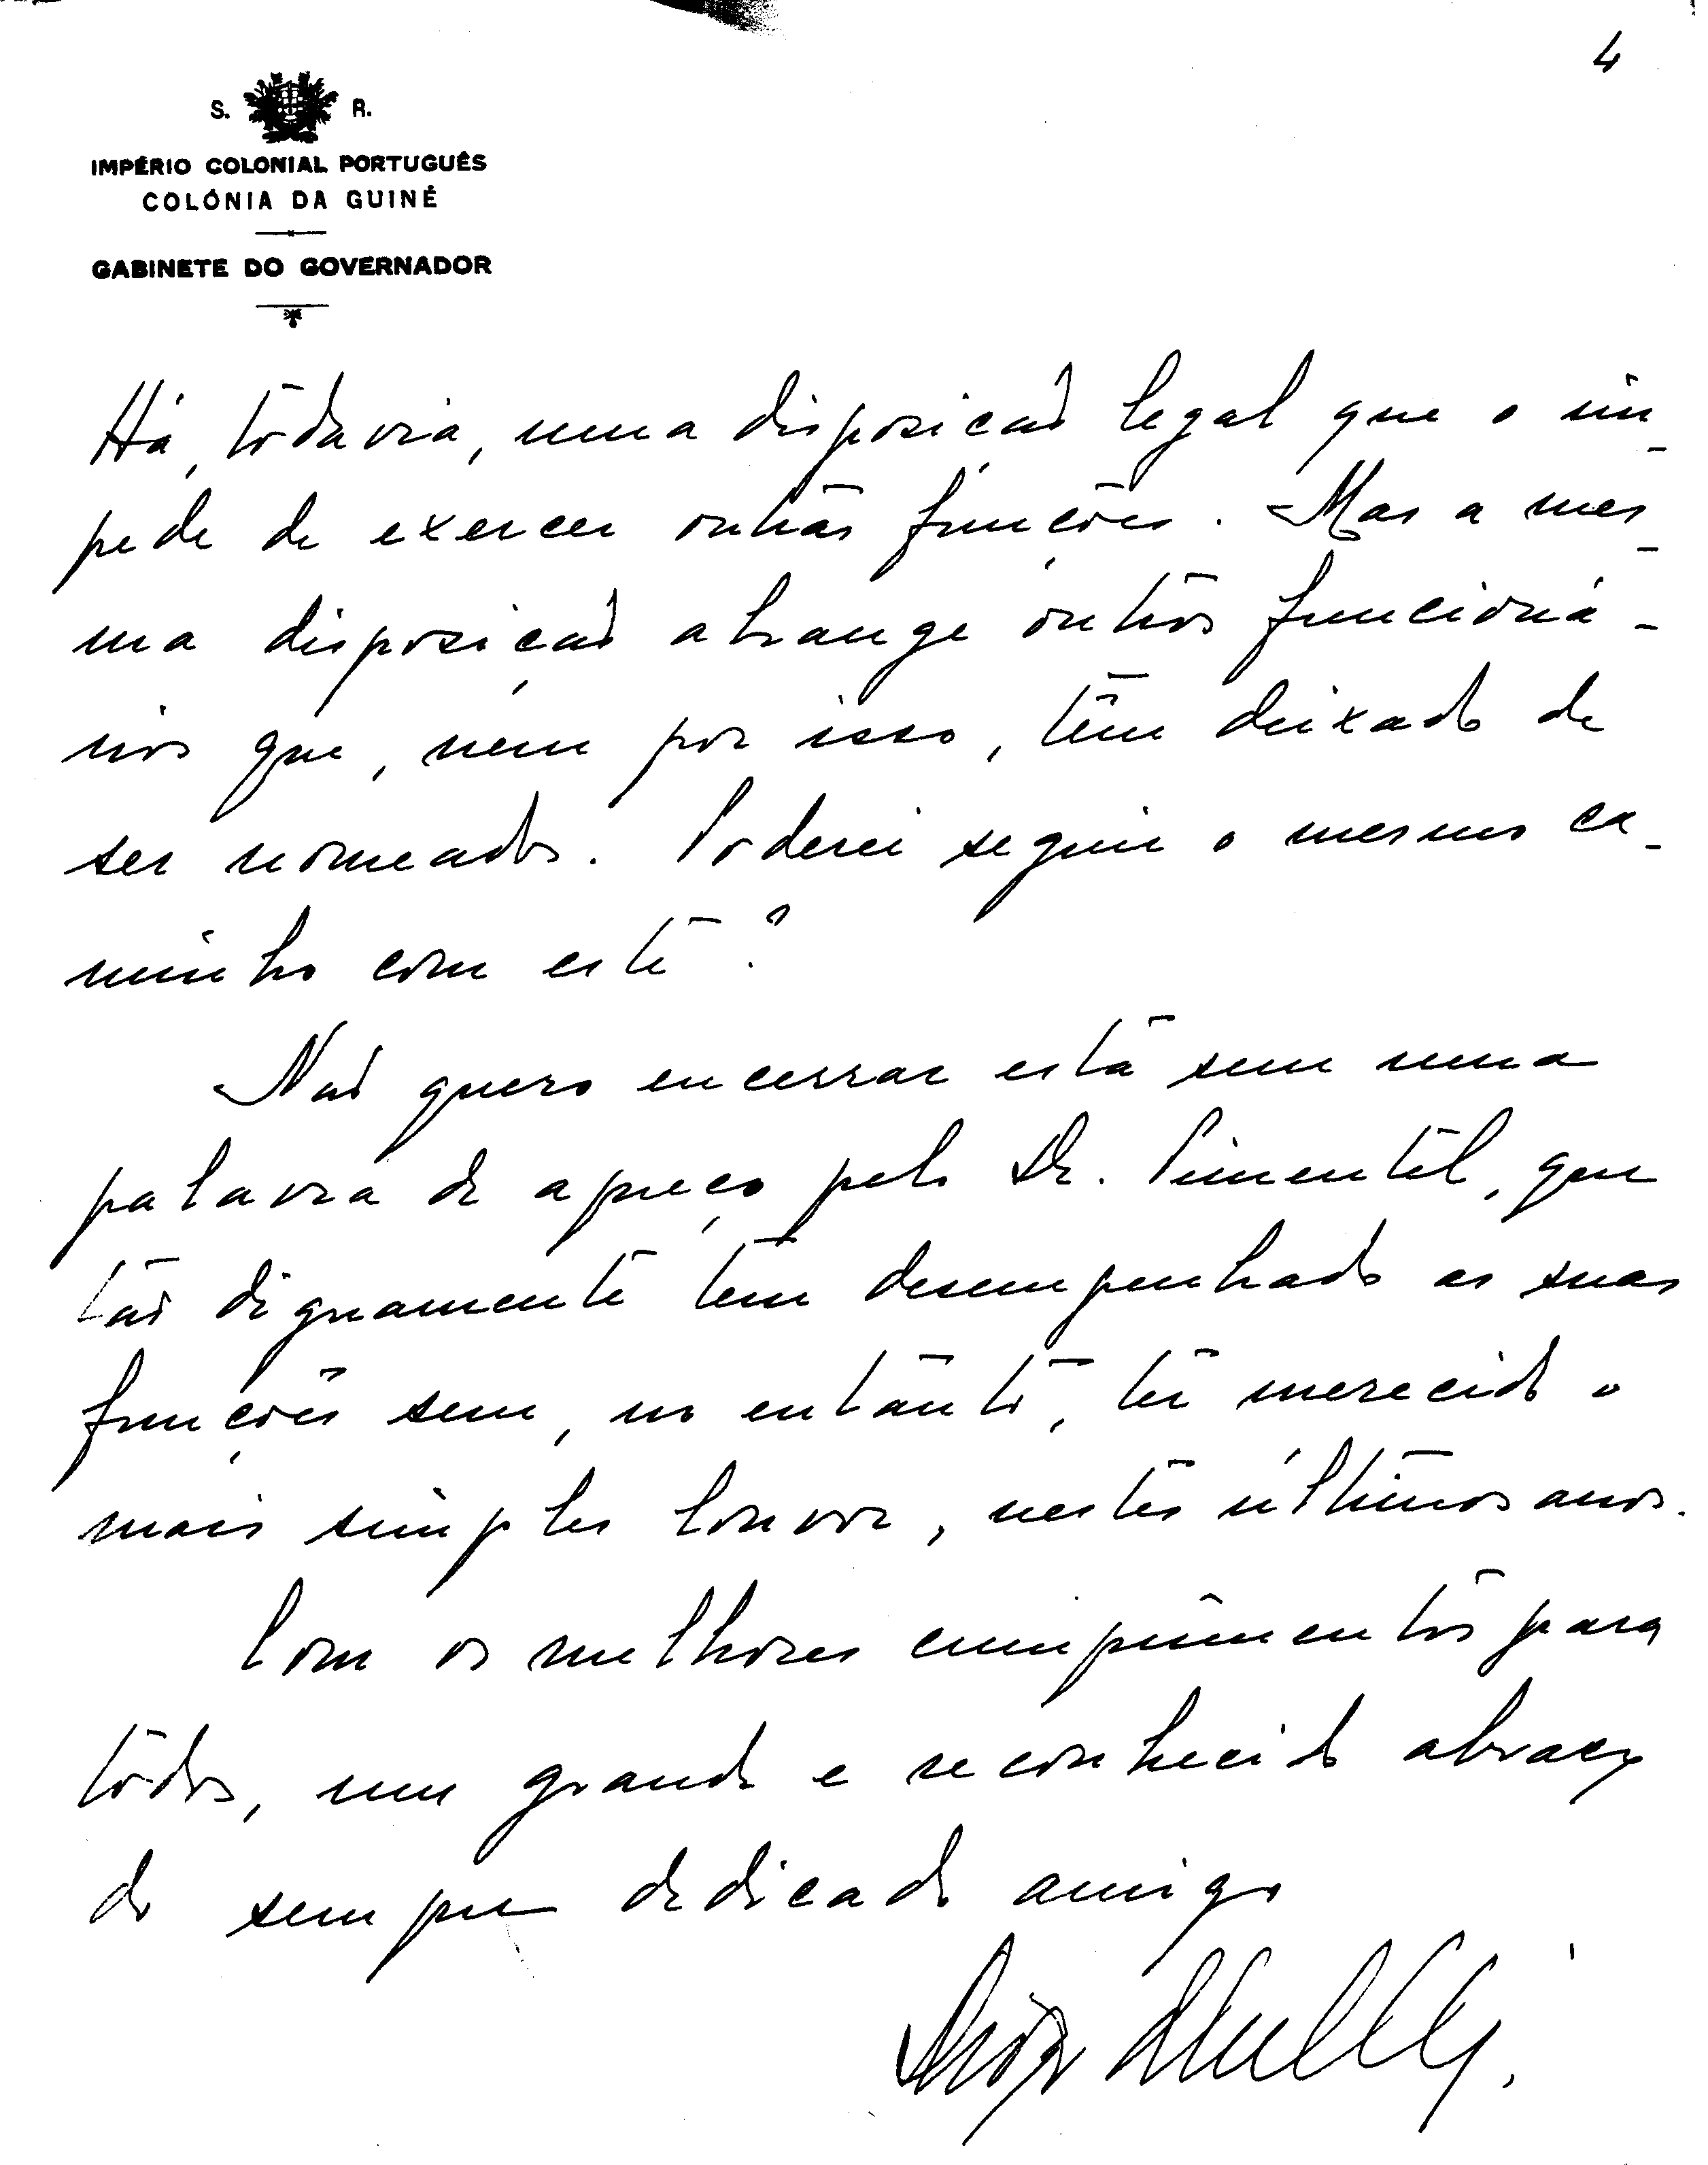 4
S. R.
IMPÉRIO COLONIAL PORTUGUÊS
COLÓNIA DA GUINÉ
GABINETE DO GOVERNADOR
Há, todavia, uma disposição legal que o im-
pede de exercer outras funções. Mas a mes-
ma disposição abrange outros funcioná-
rios que, nem por isso, têm deixado de
ser nomeados. Poderei seguir o mesmo ca-
minho com este?
Não quero encerrar esta sem uma
palavra de apreço pelo Dr. Pimentel, que
tão dignamente tem desempenhado as suas
funções sem, no entanto, ter merecido o
mais simples louvor, nestes últimos anos.
Com os melhores cumprimentos para
todos, um grande e reconhecido abraço
do sempre dedicado amigo